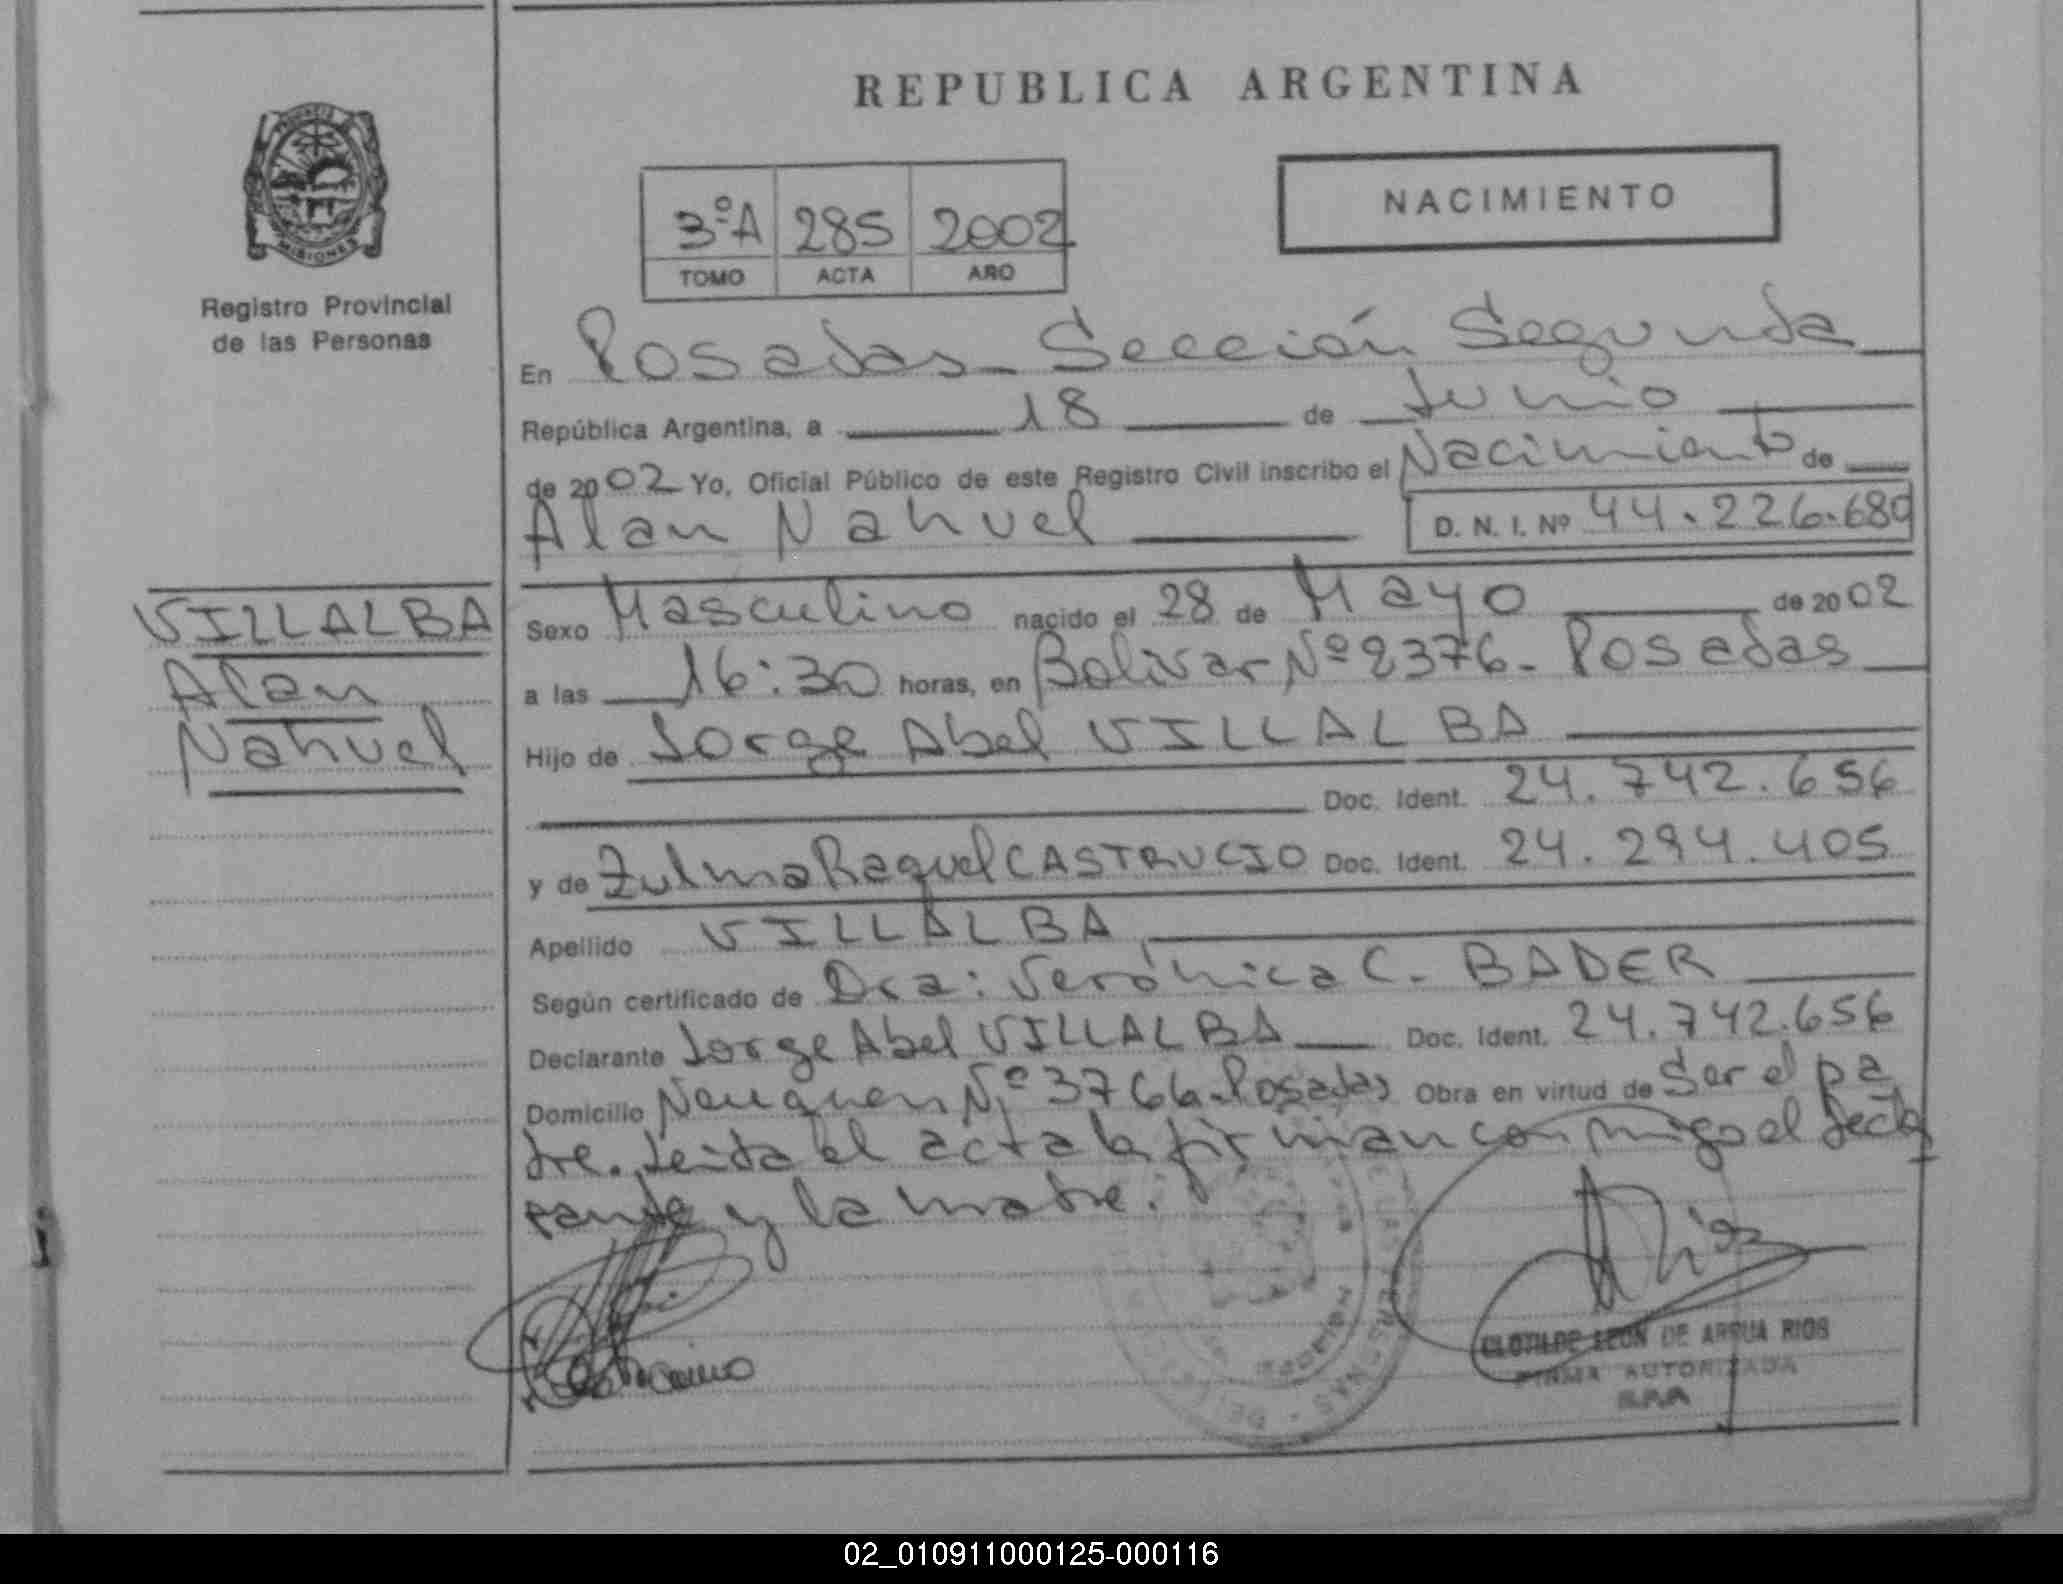 REPUBLICA ARGENTINA
PROVINCIA DE
MISIONES
Registro Provincial
de las Personas
3ºA 285 2002
TOMO ACTA AÑO
NACIMIENTO
En Posadas - Sección Segunda
República Argentina, a 18 de Junio
de 2002 Yo, Oficial Público de este Registro Civil inscribo el Nacimiento de
Alan Nahuel D. N. I. Nº 44.226.680
VILLALBA
Alan
Nahuel
Sexo Masculino nacido el 28 de Mayo de 2002
a las 16:30 horas, en Bolivar Nº 2376 - Posadas
Hijo de Jorge Abel VILLALBA
Doc. Ident. 24.742.656
y de Zulma Raquel CASTRUCIO Doc. Ident. 24.294.405
Apellido VILLALBA
Según certificado de Dra: Verónica C. BADER
Declarante Jorge Abel VILLALBA Doc. Ident. 24.742.656
Domicilio Neuquen Nº 3766 - Posadas Obra en virtud de Ser el pa
dre. Leida el acta la firman conmigo el decla
rante y la madre.
Rios
CLOTILDE LEON DE ARRUA RIOS
FIRMA AUTORIZADA
02_010911000125-000116